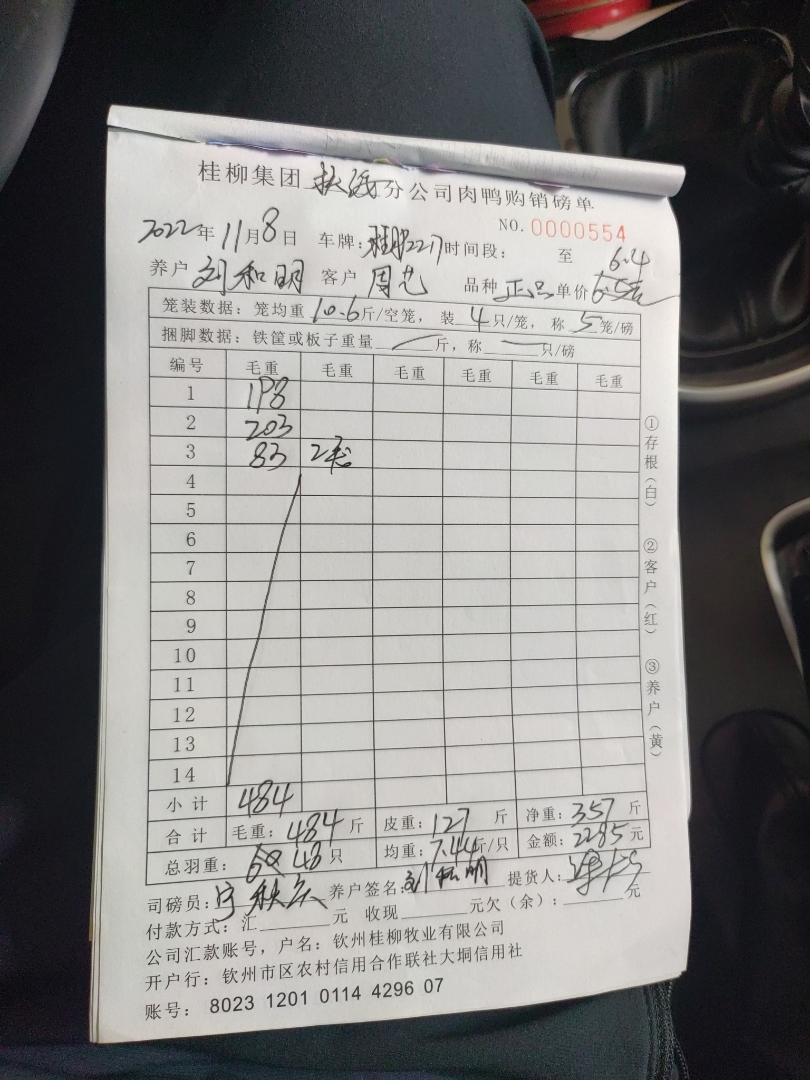 桂柳集团 分公司肉鸭购销磅单
NO. 0000554
2022年11月8日 车牌: 2217 时间段: 至
6.4
养户 刘和明 客户 周艺 品种 正品 单价
笼装数据: 笼均重 10.6 斤/空笼, 装 4 只/笼, 称 5 笼/磅
捆脚数据: 铁筐或板子重量 斤, 称 只/磅
编号 毛重 毛重 毛重 毛重 毛重 毛重
1 198
2 203
3 83 2毛
4
5
6
7
8
9
10
11
12
13
14
小计 484
合计 毛重: 484 斤 皮重: 127 斤 净重: 357 斤
总羽重: 48 只 均重: 7.44 斤/只 金额: 2285 元
司磅员: 养户签名: 刘和明 提货人:
付款方式: 汇 元 收现 元欠(余): 元
公司汇款账号, 户名: 钦州桂柳牧业有限公司
开户行: 钦州市区农村信用合作联社大垌信用社
账号: 8023 1201 0114 4296 07
①存根(白) ②客户(红) ③养户(黄)